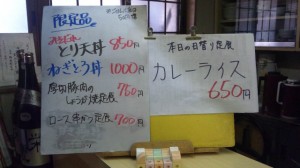 限定品
とり天丼 850円
ねぎとろ丼 1000円
厚切豚肉の
しょうが焼定食 750
ロース串かつ定食 700円
本日の日替り定食
カレーライス
650円